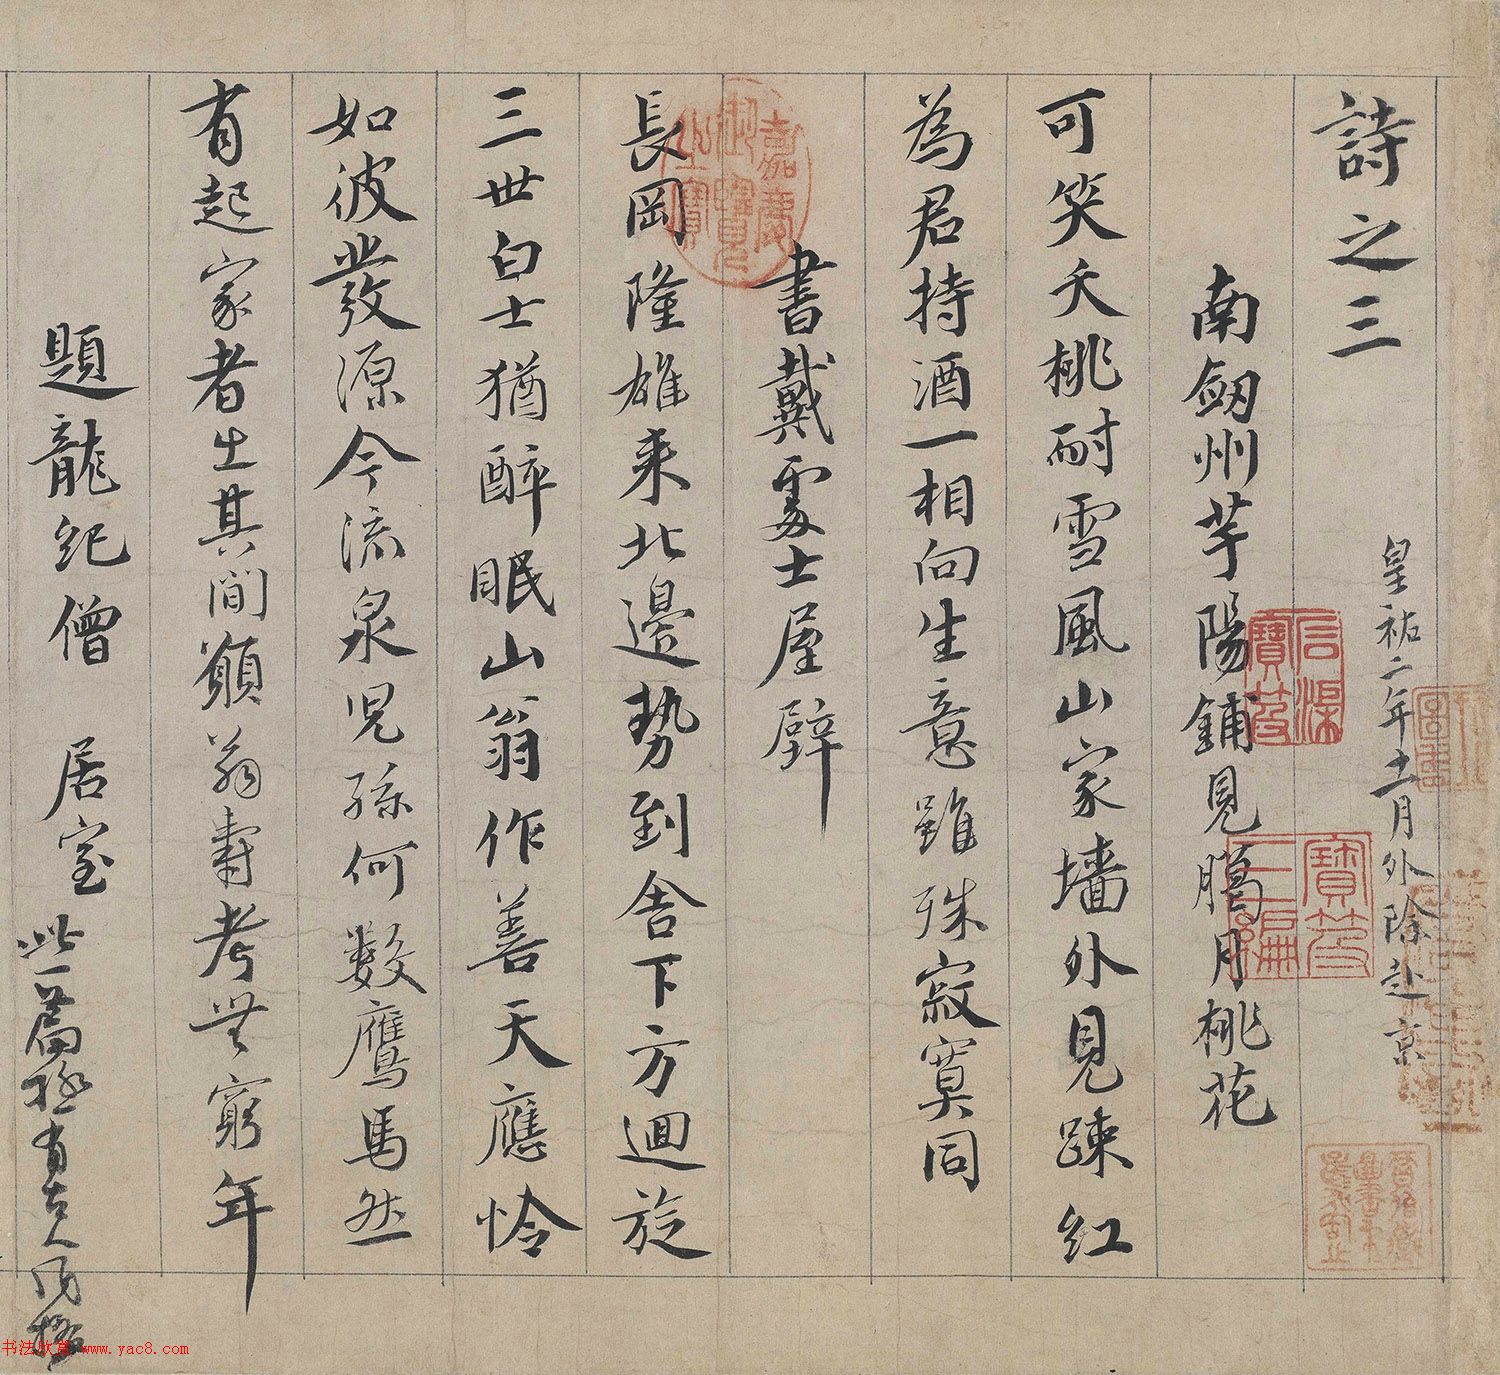 詩之三
皇祐二年十一月外除赴京
南劔州芋陽鋪見臈月桃花
可笑夭桃耐雪風山家墻外見踈紅
為君持酒一相向生意雖殊寂寞同
書戴處士屋壁
長岡隆雄来北邊勢到舍下方迴旋
三世白士猶醉眠山翁作善天應怜
如彼發源今流泉児孫何數鹰馬然
有起家者生其間願翁壽考無窮年
題龍紀僧居室
此一篇極有古人風格
嘉慶御覽之寶
寶笈三編
书法欣赏 www.yac8.com